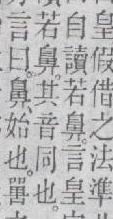 皇假借之法準
自讀若鼻言皇
讀若鼻其音同也
言曰鼻始也